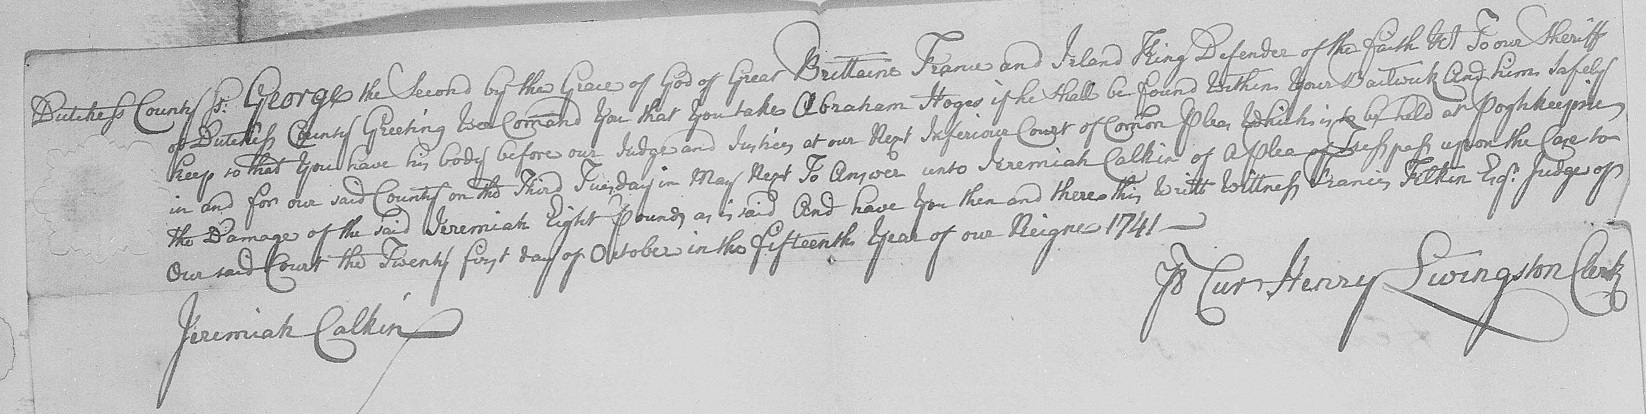 Dutchess County ss: George the Second by the Grace of God of Great Brittaine France and Ireland King Defender of the faith &c To our Sheriff
of Dutchess County Greeting Wee Comand You that You take Abraham Hoges if he shall be found within Your Bailwick And him Safely
keep so that You have his body before our Judge and Justices at our Next Inferiour Court of Comon Pleas Which is to be held at Poghkeepsie
in and for our said County on the Third Tuesday in May Next To Answer unto Jeremiah Calkin of a Plea of Tresspass upon the Case to
the Damage of the said Jeremiah Eight Pounds as is said And have You then and there this Writt Wittness Francis Filkin Esqr. Judge of
Our said Court the Twenty first day of October in the fifteenth Year of our Reigne 1741
Pr Cur Henry Livingston Clerk
Jeremiah Calkin